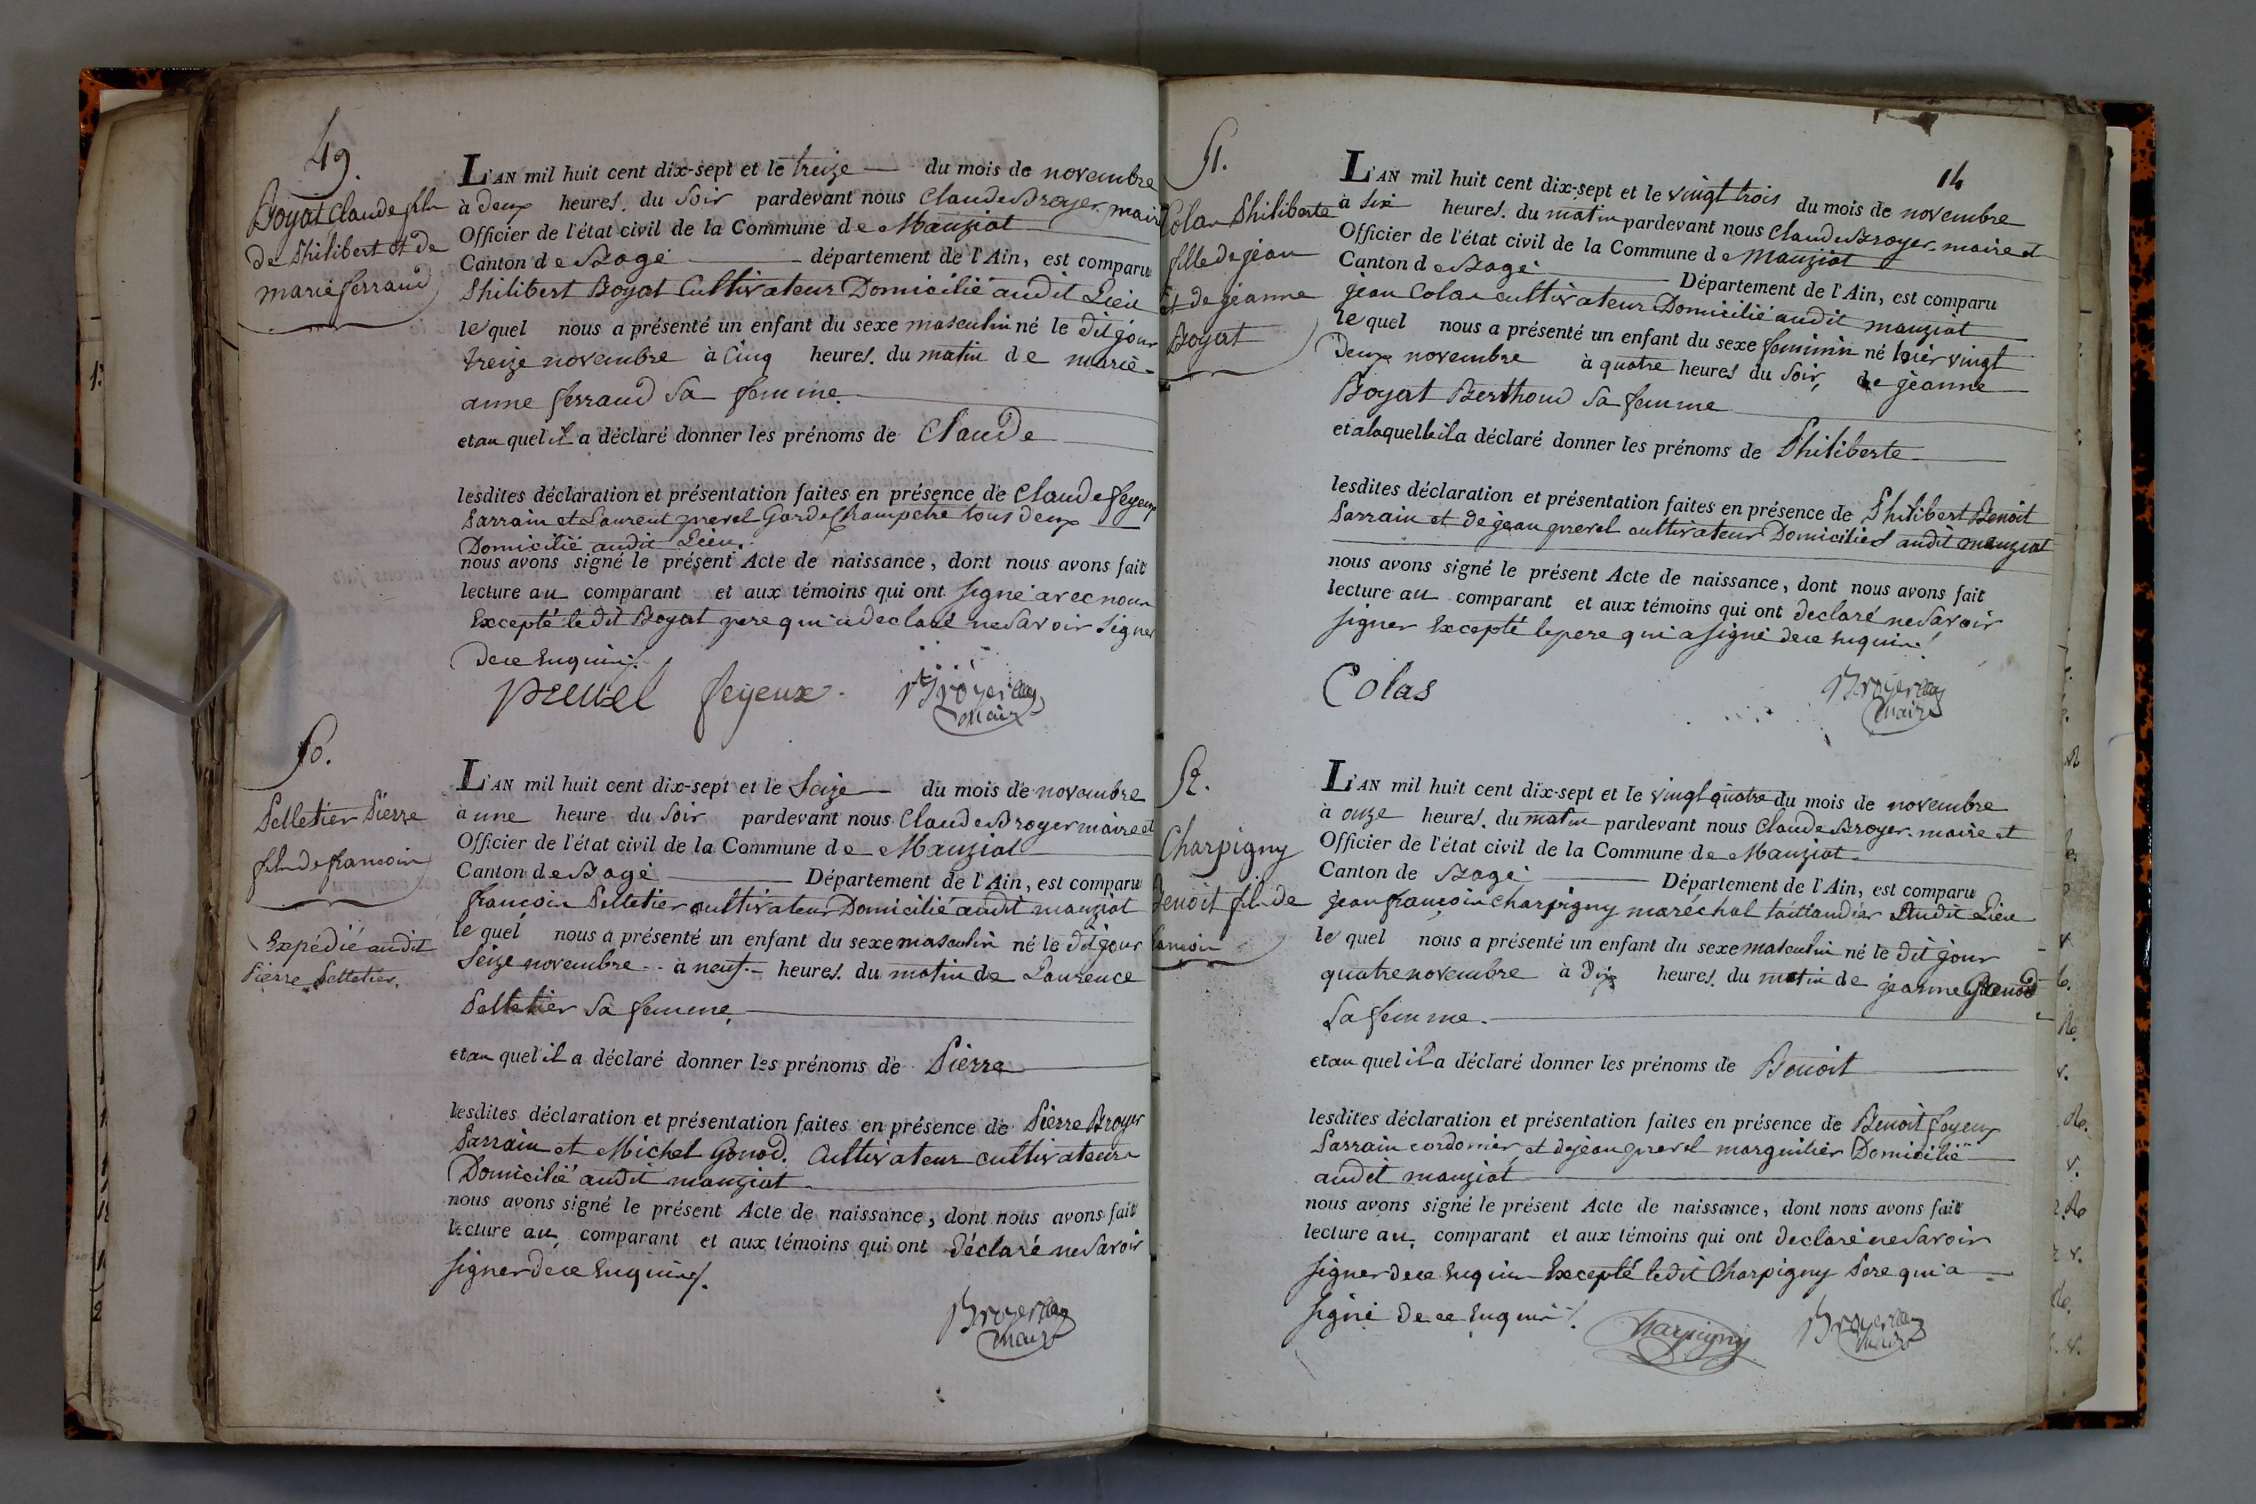 49.
Boyat Claude fils
de Philibert et de
marie ferraud
L'AN mil huit cent dix-sept et le treize du mois de novembre
à deux heures du Soir pardevant nous Claude Broyer maire
Officier de l'état civil de la Commune de Manziat
Canton de Bagé département de l'Ain, est comparu
Philibert Boyat Cultivateur Domicilié audit Lieu
lequel nous a présenté un enfant du sexe masculin né le dit jour
treize novembre à Cinq heures du matin de marie-
anne ferraud Sa femme
et auquel il a déclaré donner les prénoms de Claude
lesdites déclaration et présentation faites en présence de Claude feyeux
Parrain et Laurent prevel Garde Champetre tous deux
Domicilié audit Lieu.
nous avons signé le présent Acte de naissance, dont nous avons fait
lecture au comparant et aux témoins qui ont signé avec nous
Excepté ledit Boyat pere qui a declaré ne Savoir Signer
de ce Enquis.
prevel feyeux. Broyer
maire
50.
Pelletier Pierre
fils de francois
Expédié audit
Pierre Pelletier.
L'AN mil huit cent dix-sept et le Seize du mois de novembre
à une heure du Soir pardevant nous Claude Broyer maire et
Officier de l'état civil de la Commune de Manziat
Canton de Bagé Département de l'Ain, est comparu
francois Pelletier cultivateur Domicilié audit manziat
lequel nous a présenté un enfant du sexe masculin né le dit jour
Seize novembre à neuf heures du matin de Laurence
Pelletier Sa femme,
et auquel il a déclaré donner les prénoms de Pierre
lesdites déclaration et présentation faites en présence de Pierre Broyer
Parrain et Michel Gonod. Cultivateur cultivateurs
Domicilié audit manziat
nous avons signé le présent Acte de naissance, dont nous avons fait
lecture au comparant et aux témoins qui ont déclaré ne Savoir
signer de ce Enquis.
Broyer
maire
14
51.
Colas Philiberte
fille de jean
et de jeanne
Boyat
L'AN mil huit cent dix-sept et le vingt trois du mois de novembre
à six heures du matin pardevant nous Claude Broyer maire et
Officier de l'état civil de la Commune de Manziat
Canton de Bagé Département de l'Ain, est comparu
jean Colas cultivateur Domicilié audit manziat
lequel nous a présenté un enfant du sexe feminin né hier vingt
deux novembre à quatre heures du Soir, de jeanne
Boyat Berthoud Sa femme
et a laquelle il a déclaré donner les prénoms de Philiberte
lesdites déclaration et présentation faites en présence de Philibert Benoit
Parrain et de jean prevel cultivateur Domiciliés audit manziat
nous avons signé le présent Acte de naissance, dont nous avons fait
lecture au comparant et aux témoins qui ont declaré ne Savoir
signer Excepté le pere qui a signé de ce Enquis.
Colas Broyer
maire
52.
Charpigny
Benoit fils de
francois
L'AN mil huit cent dix-sept et le vingt quatre du mois de novembre
à onze heures du matin pardevant nous Claude Broyer maire et
Officier de l'état civil de la Commune de Manziat
Canton de Bagé Département de l'Ain, est comparu
jean françois Charpigny maréchal taillandier Audit Lieu
lequel nous a présenté un enfant du sexe masculin né le dit jour
quatre novembre à Dix heures du matin de jeanne
Sa femme.
et auquel il a déclaré donner les prénoms de Benoit
lesdites déclaration et présentation faites en présence de Benoit feyeux
Parrain cordonier et de jean prevel marguilier Domicilié
audit manziat
nous avons signé le présent Acte de naissance, dont nous avons fait
lecture au comparant et aux témoins qui ont declaré ne Savoir
signer de ce Enquis Excepté ledit Charpigny Pere qui a
signé de ce Enquis.
Charpigny Broyer
maire